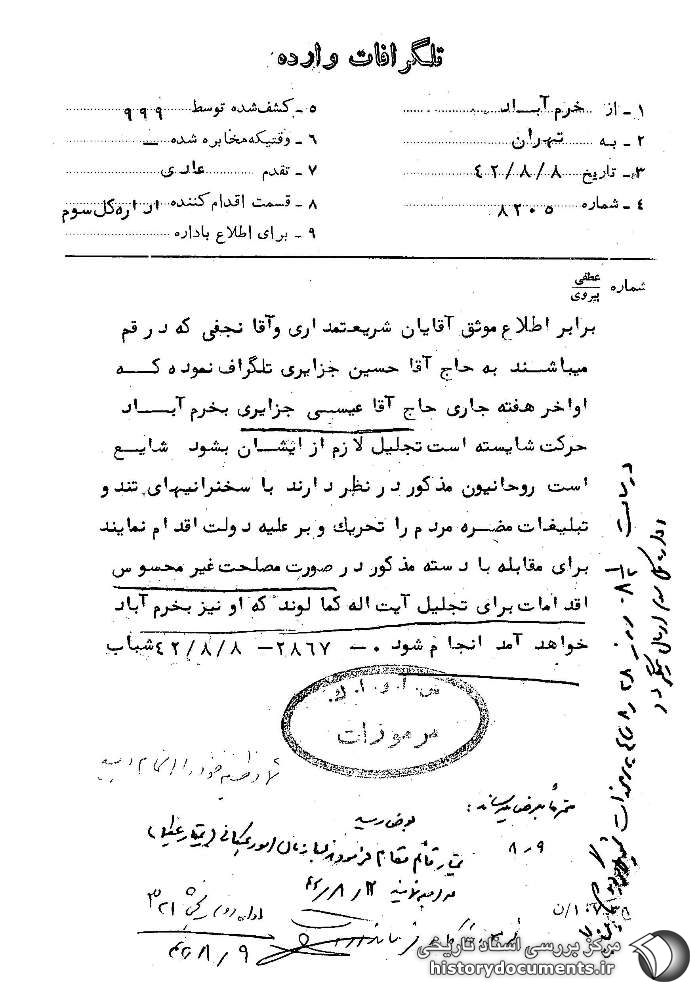 تلگرافات وارده
۱ - از خرم آباد
۲ - به تهران
۳ - تاریخ ۴۲/۸/۸
۴ - شماره ۸۲۰۵
۵ - کشف شده توسط ۹۹۹
۶ - وقتیکه مخابره شده —
۷ - تقدم عادی
۸ - قسمت اقدام کننده اداره کل سوم
۹ - برای اطلاع باداره
شماره عطفی
پیروی
برابر اطلاع موثق آقایان شریعتمداری وآقا نجفی که در قم
میباشند به حاج آقا حسین جزایری تلگراف نموده که
اواخر هفته جاری حاج آقا عیسی جزایری بخرم آباد
حرکت شایسته است تجلیل لازم از ایشان بشود شایع
است روحانیون مذکور در نظر دارند با سخنرانیهای تند و
تبلیغات مضره مردم را تحریك و بر علیه دولت اقدام نمایند
برای مقابله با دسته مذکور در صورت مصلحت غیر محسوس
اقدامات برای تجلیل آیت اله کمالوند که او نیز بخرم آباد
خواهد آمد انجام شود ۰- ۲۸۶۷ -۴۲/۸/۸ شباب
س.ا.و.ا.ك.
مرموزات
محترماً بعرض میرساند:
۸/۹
بعرض رسید
۴۲/۸/۱۲
۴۲/۸/۹
مرکز بررسی اسناد تاریخی
historydocuments.ir